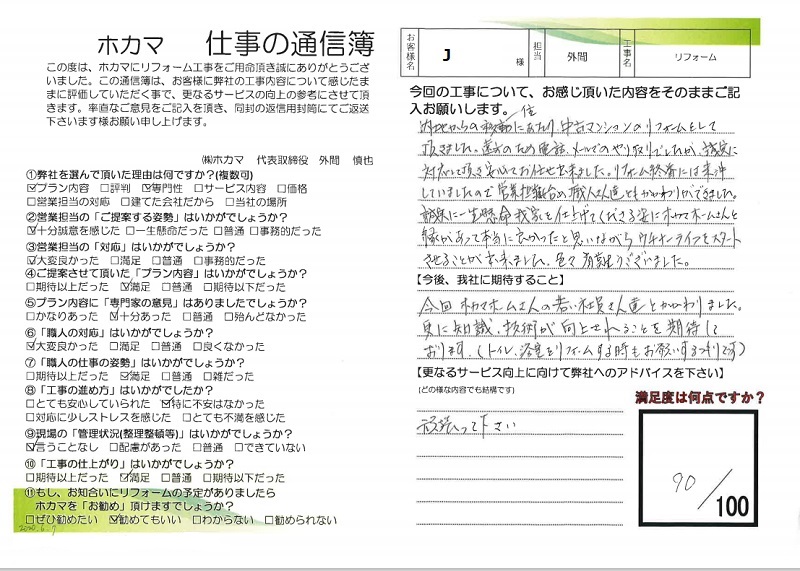 ホカマ 仕事の通信簿
この度は、ホカマにリフォーム工事をご用命頂き誠にありがとうござ
いました。この通信簿は、お客様に弊社の工事内容について感じたま
まに評価していただく事で、更なるサービスの向上の参考にさせて頂
きます。率直なご意見をご記入を頂き、同封の返信用封筒にてご返送
下さいます様お願い申し上げます。
㈱ホカマ 代表取締役 外間 慎也
①弊社を選んで頂いた理由は何ですか?(複数可)
☑プラン内容 □評判 ☑専門性 □サービス内容 □価格
□営業担当の対応 □建てた会社だから □当社の場所
②営業担当の「ご提案する姿勢」はいかがでしょうか?
☑十分誠意を感じた □一生懸命だった □普通 □事務的だった
③営業担当の「対応」はいかがでしょうか?
☑大変良かった □満足 □普通 □事務的だった
④ご提案させて頂いた「プラン内容」はいかがでしょうか?
□期待以上だった ☑満足 □普通 □期待以下だった
⑤プラン内容に「専門家の意見」はありましたでしょうか?
□かなりあった ☑十分あった □普通 □殆んどなかった
⑥「職人の対応」はいかがでしょうか?
☑大変良かった □満足 □普通 □良くなかった
⑦「職人の仕事の姿勢」はいかがでしょうか?
□期待以上だった ☑満足 □普通 □雑だった
⑧「工事の進め方」はいかがでしたか?
□とても安心していられた ☑特に不安はなかった
□対応に少しストレスを感じた □とても不満を感じた
⑨現場の「管理状況(整理整頓等)」はいかがでしょうか?
☑言うことなし □配慮があった □普通 □できていない
⑩「工事の仕上がり」はいかがでしょうか?
□期待以上だった ☑満足 □普通 □期待以下だった
⑪もし、お知合いにリフォームの予定がありましたら
ホカマを「お勧め」頂けますでしょうか?
□ぜひ勧めたい ☑勧めてもいい □わからない □勧められない
2020.6.7
お客様名 J 様 担当 外間 工事名 リフォーム
今回の工事について、お感じ頂いた内容をそのままご記
入お願いします。
内地からの移住にあたり、中古マンションのリフォームをして
頂きました。遠方のため電話、メールでのやり取りでしたが、誠実に
対応して頂き安心してお任せ出来ました。リフォーム終盤には来沖
していましたので営業担当始め職人さん達ともかかわりができました。
誠実に一生懸命我家を仕上げてくださる姿にホカマホームさんと
縁があって本当に良かったと思いながらウチナーライフをスタート
させることが出来ました。色々有難うございました。
【今後、我社に期待すること】
今回ホカマホームさんの若い社員さん達とかかわりました。
更に知識、技術が向上されることを期待して
おります。(トイレ、浴室をリフォームする時もお願いするつもりです)
【更なるサービス向上に向けて弊社へのアドバイスを下さい】
(どの様な内容でも結構です)
頑張って下さい
満足度は何点ですか?
90/100